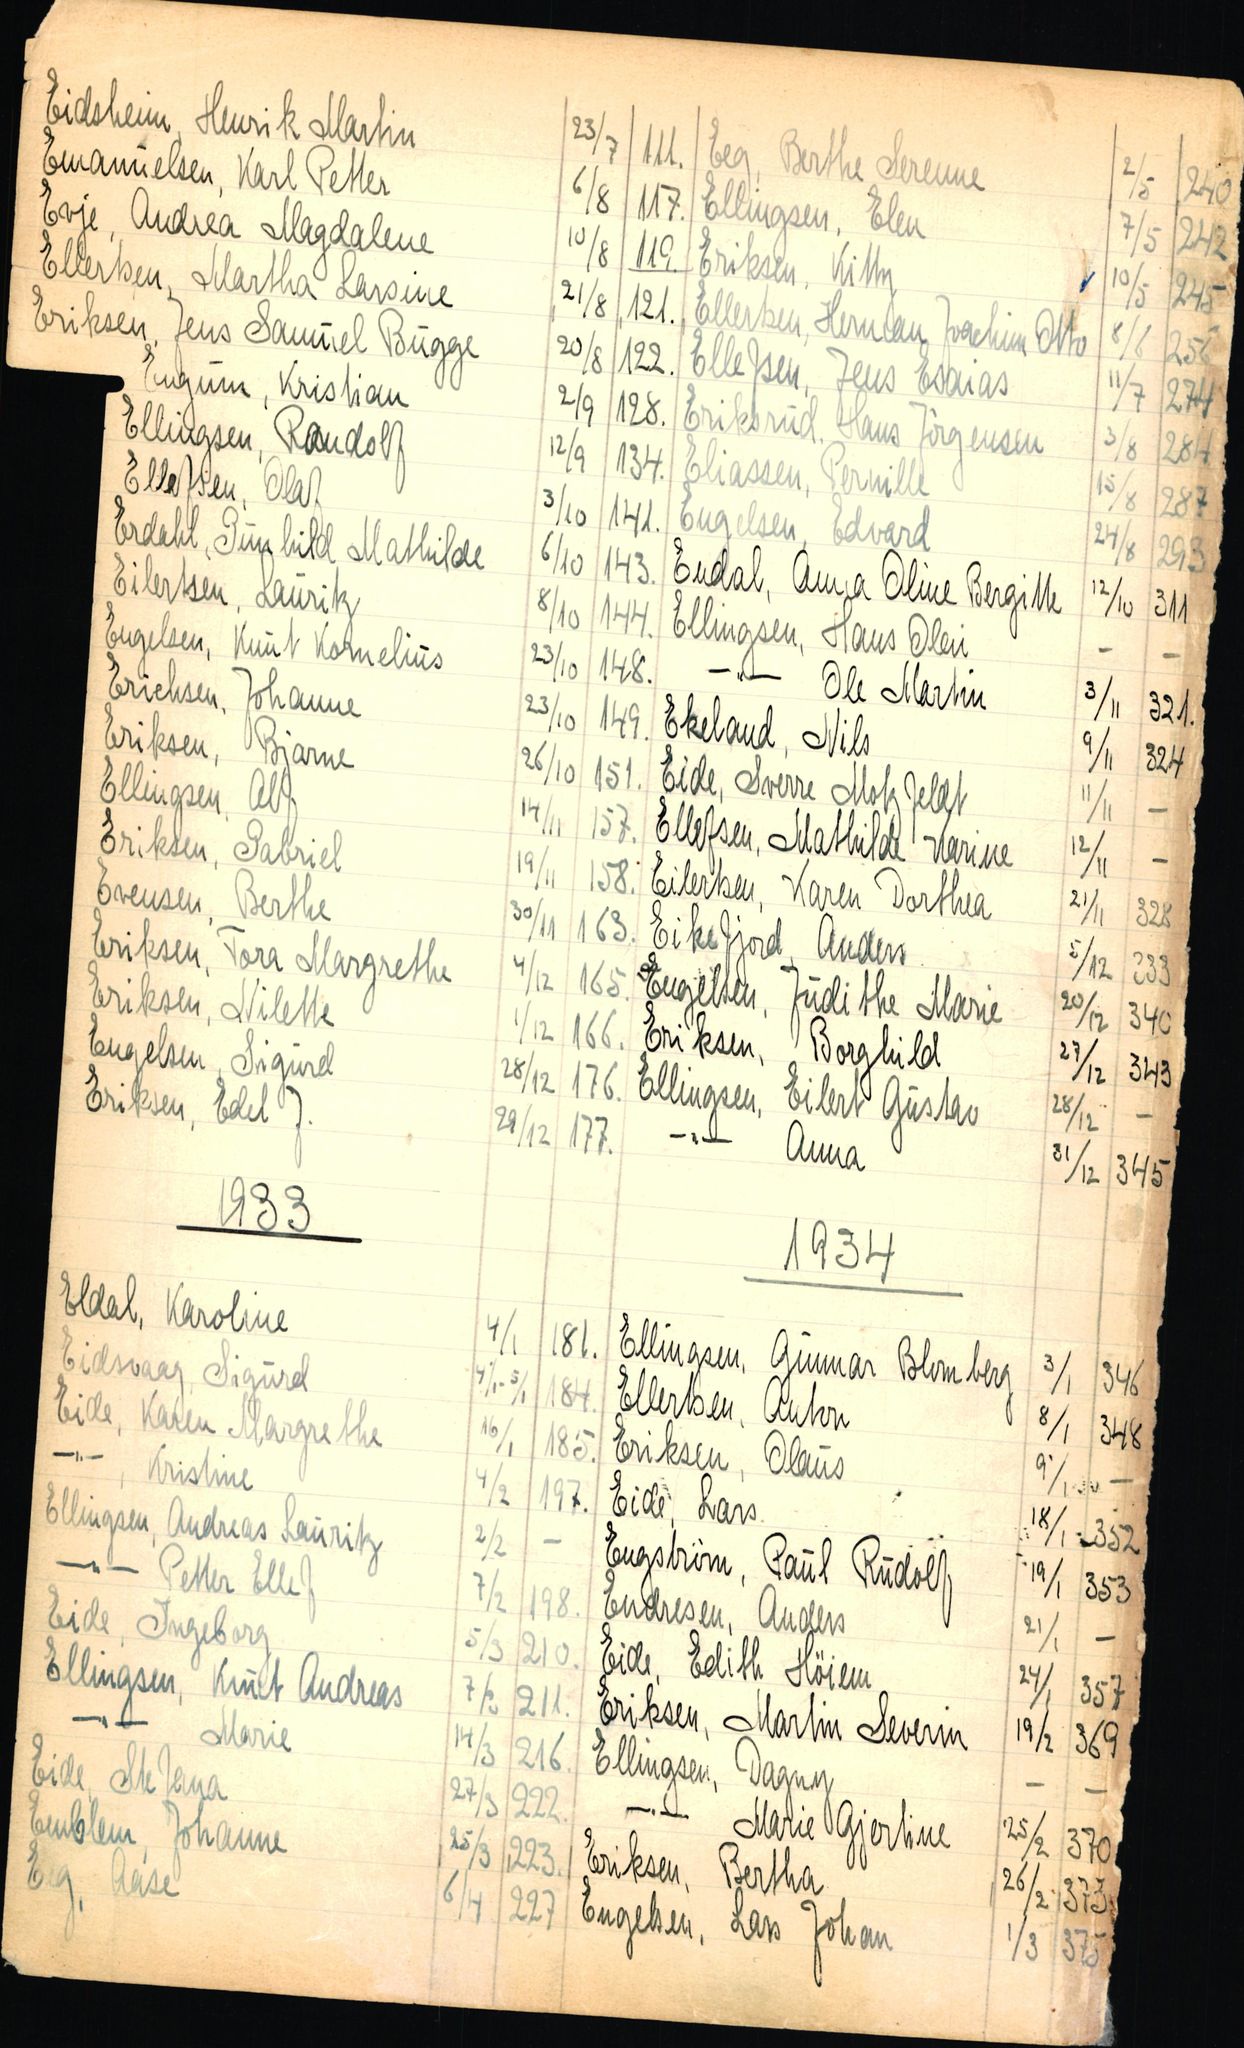 Eidsheim, Henrik Martin 23/7 111.
Emanuelsen, Karl Petter 6/8 117.
Evje, Andrea Magdalene 10/8 119.
Ellertsen, Martha Larsine 21/8 121.
Eriksen, Jens Samuel Bugge 20/8 122.
Engum, Kristian 2/9 128.
Ellingsen, Randolf 12/9 134.
Ellefsen, Olaf 3/10 141.
Erdahl, Gunhild Mathilde 6/10 143.
Eilertsen, Lauritz 8/10 144.
Engelsen, Knut Kornelius 23/10 148.
Erichsen, Johanne 23/10 149.
Eriksen, Bjarne 26/10 151.
Ellingsen, Alf 14/11 157.
Eriksen, Gabriel 19/11 158.
Evensen, Berthe 30/11 163.
Eriksen, Tora Margrethe 4/12 165.
Eriksen, Nilette 1/12 166.
Engelsen, Sigurd 28/12 176.
Eriksen, Edel J. 29/12 177.
1933
Eldal, Karoline 4/1 181.
Eidsvaag, Sigurd 4/1-5/1 184.
Eide, Karen Margrethe 16/1 185.
—"— , Kristine 4/2 197.
Ellingsen, Andreas Lauritz 2/2 –
—"— Petter Ellef 7/2 198.
Eide, Ingeborg 5/3 210.
Ellingsen, Knut Andreas 7/3 211.
—"— Marie 14/3 216.
Eide, Stefana 27/3 222.
Emblem, Johanne 25/3 223.
Eeg, Aase 6/4 227
Eeg, Berthe Serenne 2/5 240
Ellingsen, Elen 7/5 242
Eriksen, Kitty 10/5 245
Ellertsen, Herman Joachim Otto 8/6 256
Ellefsen, Jens Esaias 11/7 274
Eriksrud, Hans Jörgensen 3/8 284
Eliassen, Pernille 15/8 287
Engelsen, Edvard 24/8 293
Endal, Anna Oline Bergitte 12/10 311
Ellingsen, Hans Olai – –
—"— Ole Martin 3/11 321.
Ekeland, Nils 9/11 324
Eide, Sverre Motzfeldt 11/11 –
Ellefsen, Mathilde Karine 12/11 –
Eilertsen, Karen Dorthea 21/11 328
Eikefjord, Anders 5/12 333
Engelsen, Judithe Marie 20/12 340
Eriksen, Borghild 27/12 343
Ellingsen, Eilert Gustav 28/12 –
—"— Anna 31/12 345
1934
Ellingsen, Gunnar Blomberg 3/1 346
Ellertsen, Anton 8/1 348
Eriksen, Olaus 9/1 –
Eide, Lars 18/1 352
Engström, Paul Rudolf 19/1 353
Endresen, Anders 21/1 –
Eide, Edith Höiem 24/1 357
Eriksen, Martin Severin 19/2 369
Ellingsen, Dagny – –
—"— Marie Gjertine 25/2 370
Eriksen, Bertha 26/2 373
Engelsen, Lars Johan 1/3 375